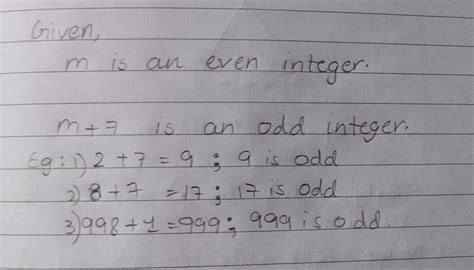 Given,
m is an even integer.
m+7 is an odd integer.
Eg: 1) 2+7 = 9 ; 9 is odd
2) 8+7 = 17 ; 17 is odd
3) 998+1 = 999 ; 999 is odd.